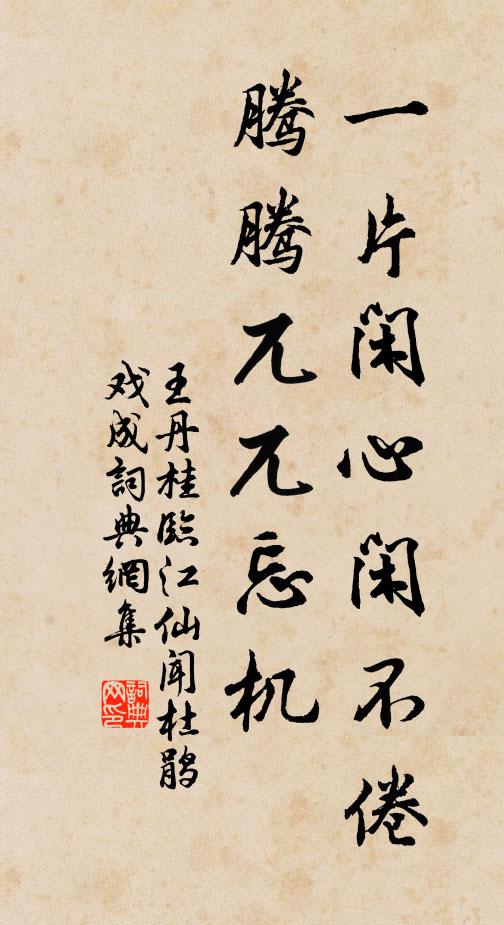 一片闲心闲不倦
腾腾兀兀忘机
王丹桂臨江仙闻杜鹃
戏成詞典網集
詞典网印